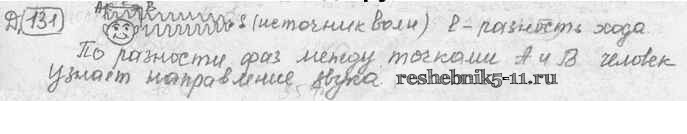 Д. 131 A B S (источник волн) l - разность хода
По разности фаз между точками А и В человек
узнает направление звука.
reshebnik5-11.ru